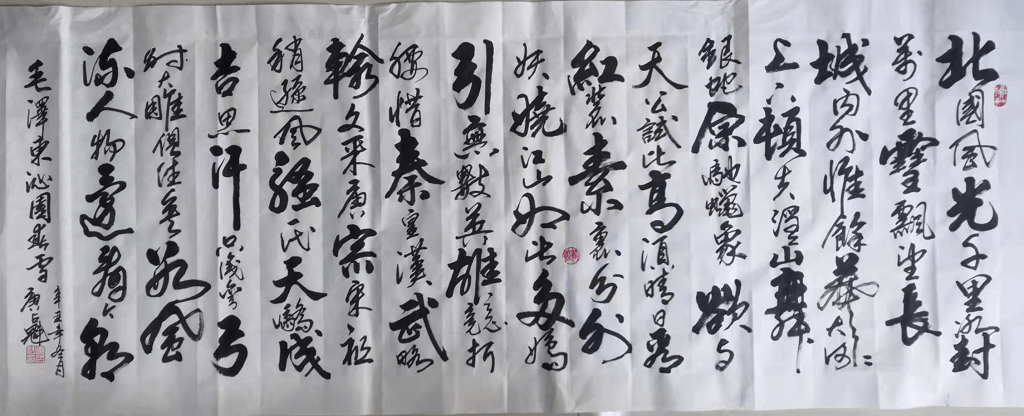 北國風光千里冰封
萬里雪飄望長
城内外惟餘莽莽大河
上下頓失滔滔山舞
銀蛇原馳蠟象欲与
天公試比高須晴日看
紅裝素裹分外
妖嬈江山如此多嬌
引無數英雄競折
腰惜秦皇漢武略
輸文采唐宗宋祖
稍遜風騷一代天驕成
吉思汗只識彎弓
射大雕俱往矣數風
流人物還看今朝
毛澤東沁園春雪
辛丑年冬月